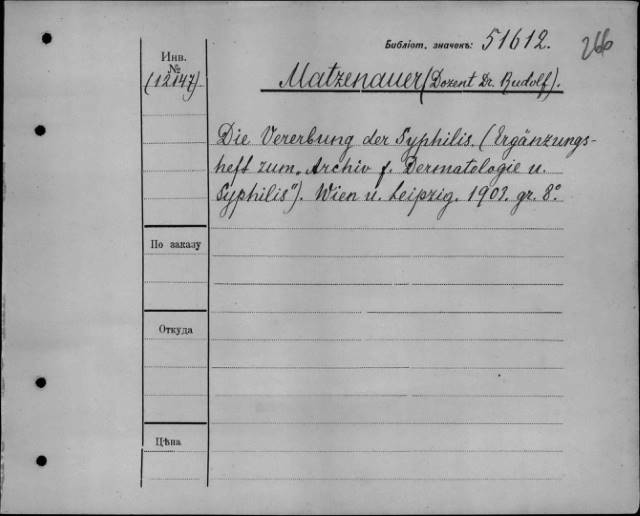 Библіот. значекъ: 51612.
266
Инв.
№
(12147)
Matzenauer (Dozent Dr. Rudolf).
Die Vererbung der Syphilis. (Ergänzungs-
heft zum „Archiv f. Dermatologie u.
Syphilis"). Wien u. Leipzig. 1903. gr. 8°
По заказу
Откуда
Цѣна